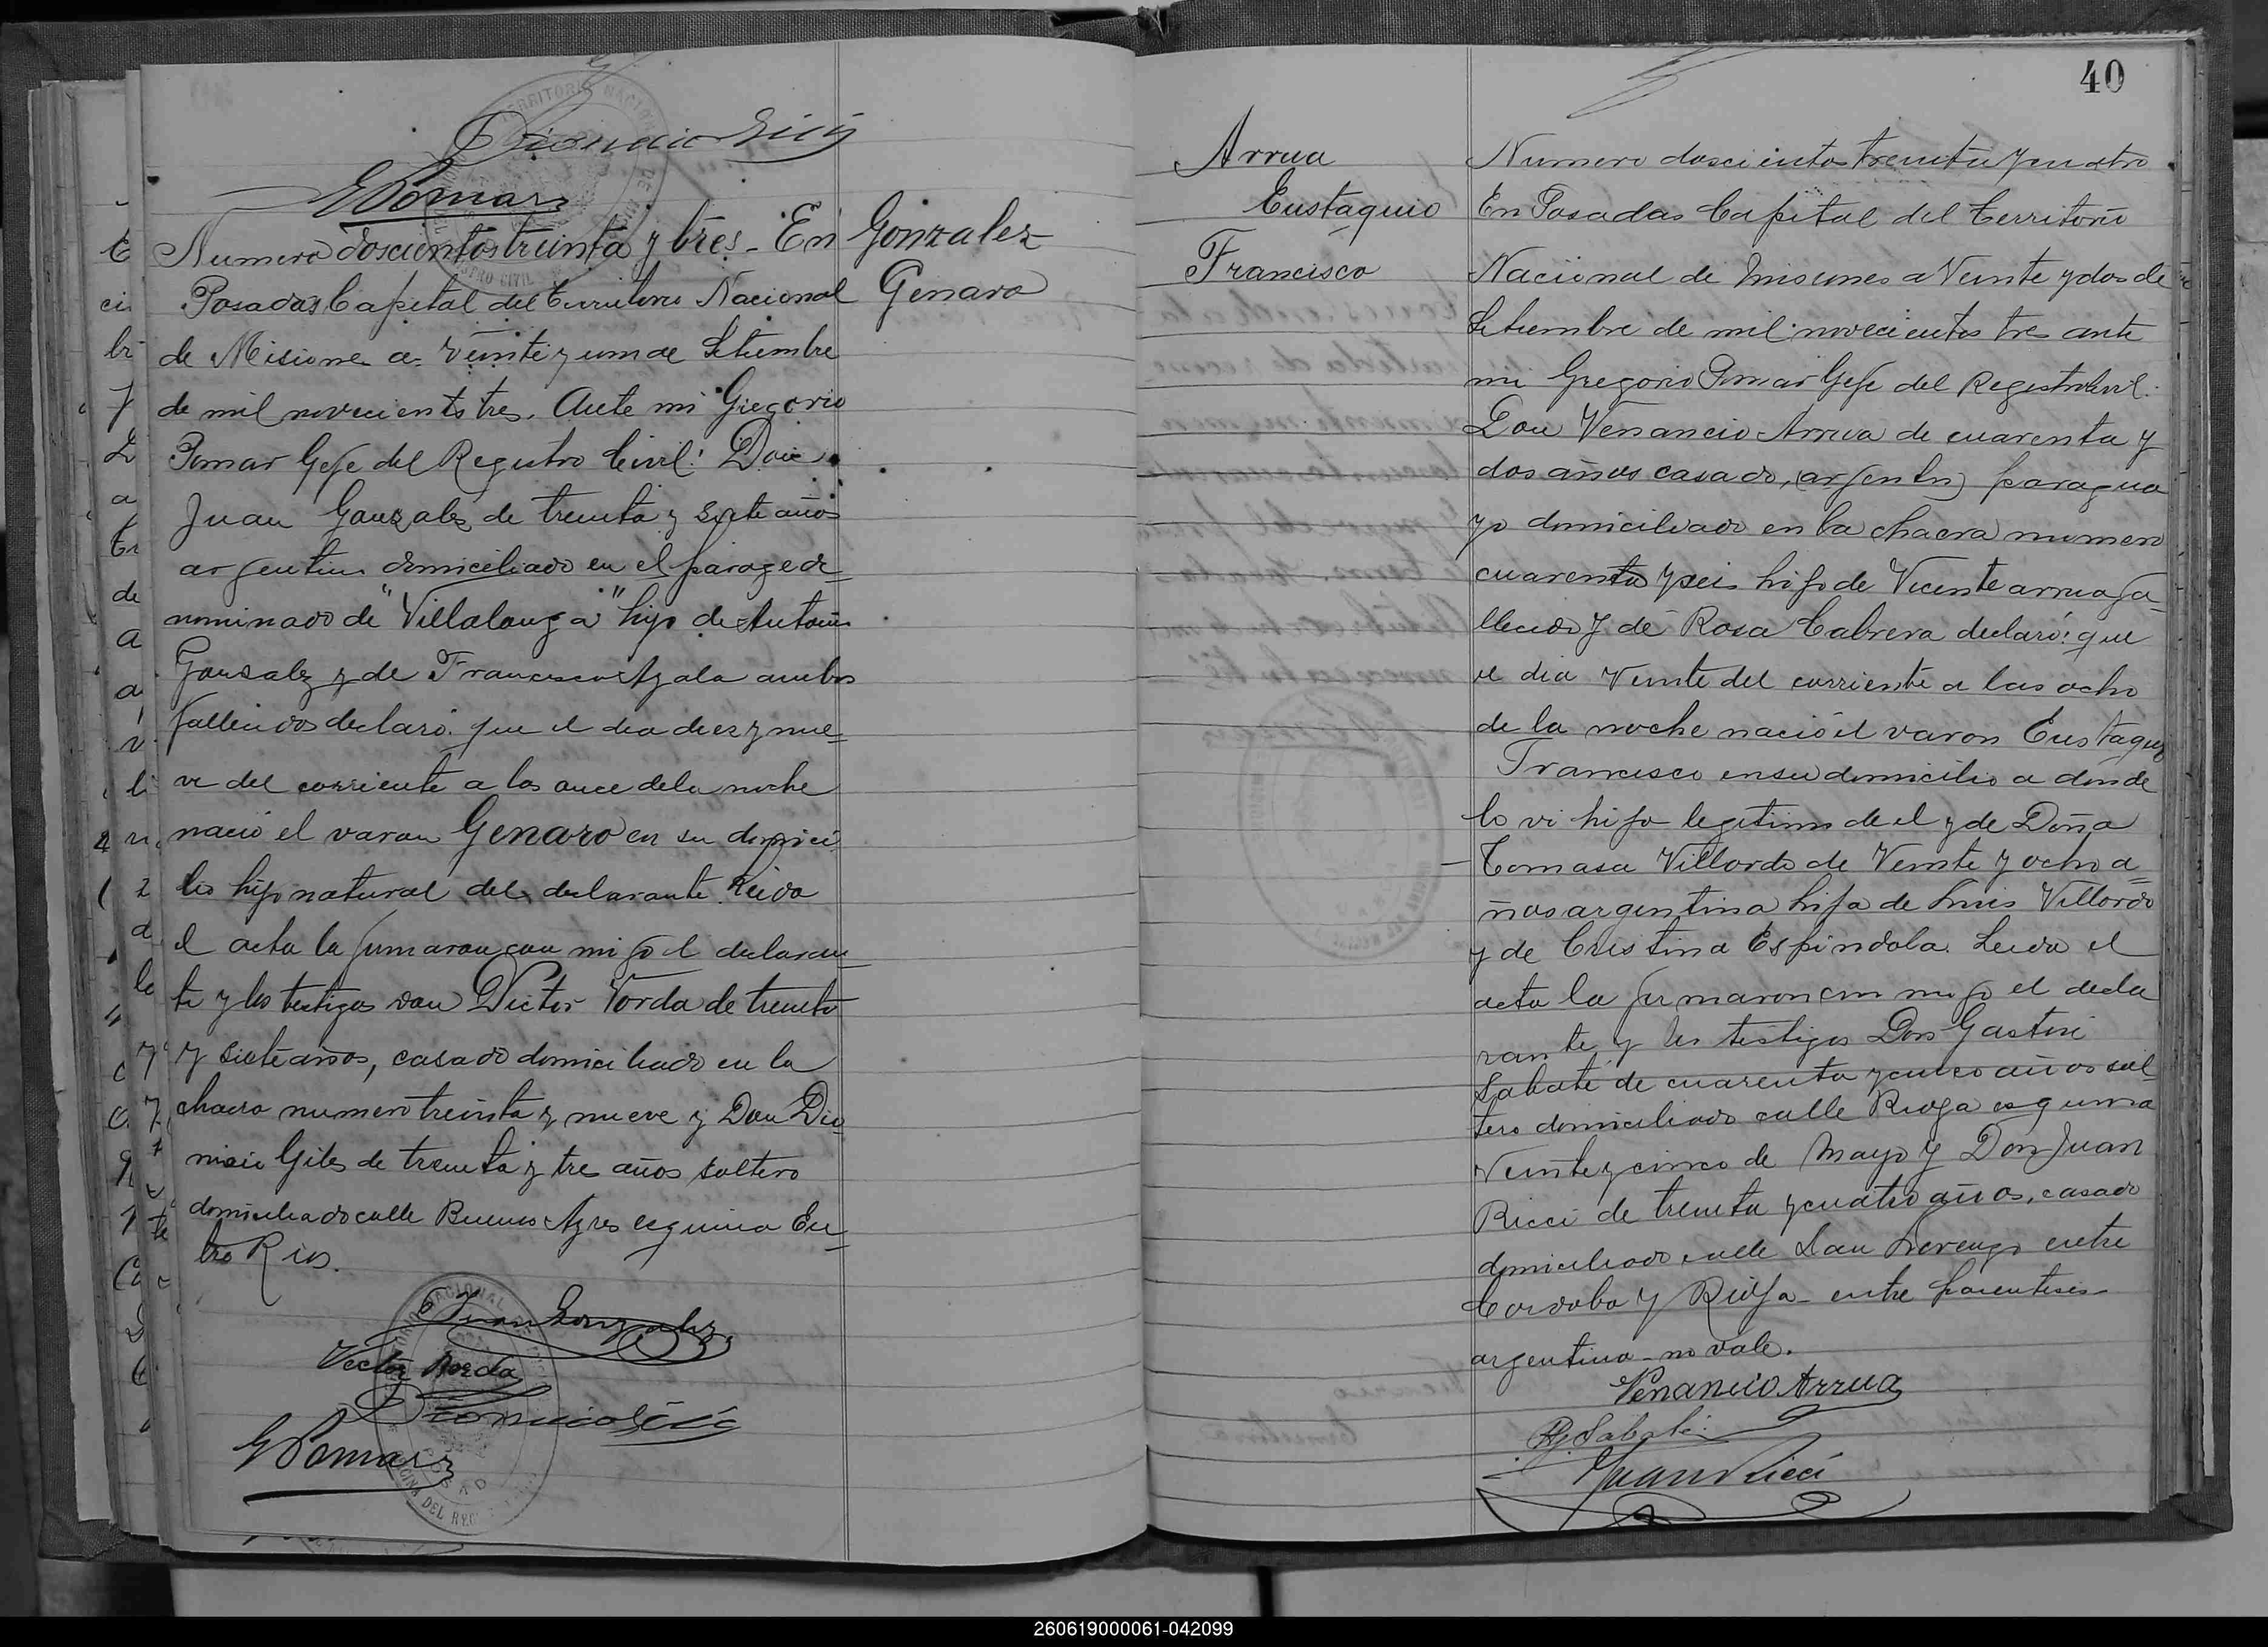 GPomar
Numero doscientos treinta y tres - En
Posadas Capital del Territorio Nacional
de Misiones a veinte y uno de Setiembre
de mil novecientos tres. Ante mi Gregorio
Pomar Gefe del Registro Civil: Don
Juan Gonzalez de treinta y siete años
argentino domiciliado en el parage de-
nominado de "Villalonga" hijo de Antonio
Gonzalez y de Francisca Ayala ambos
fallecidos declaró: que el dia diez y nue-
ve del corriente a las once de la noche
nació el varon Genaro en su domici-
lio hijo natural del declarante. Leida
el acta la firmaron con migo el declaran-
te y los testigos don Victor Vorda de treinta
y siete años, casado domiciliado en la
chacra numero treinta y nueve y Don Dio-
nicio Giles de treinta y tres años soltero
domiciliado calle Buenos Ayres esquina En-
tre Rios.
Juan Gonzalez
Victor
GPomar
Gonzalez
Genaro
40
Arrua
Eustaquio
Francisco
Numero doscientos treinta y cuatro
En Posadas Capital del Territorio
Nacional de Misiones a Veinte y dos de
Setiembre de mil novecientos tres ante
mi Gregorio Pomar Gefe del Registro Civil.
Don Venancio Arrua de cuarenta y
dos años casado, (argentino) paragua
yo domiciliado en la chacra numero
cuarenta y seis hijo de Vicente Arrua fa-
llecido y de Rosa Cabrera declaró: que
el dia Veinte del corriente a las ocho
de la noche nació el varon Eustaquio
Francisco en su domicilio a donde
lo vi hijo legitimo de el y de Doña
Tomasa Villordo de Veinte y ocho a-
ños argentina hija de Luis Villordo
y de Cristina Espindola. Leida el
acta la firmaron con migo el decla
rante y los testigos Don Gaston
Sabaté de cuarenta y cinco años sol-
tero domiciliado calle Rioja esquina
Veinte y cinco de Mayo y Don Juan
Ricci de treinta y cuatro años, casado
domiciliado calle San Lorenzo entre
Cordoba y Rioja - entre parentesis -
argentino - no vale.
Venancio Arrua
Sabaté
Juan Ricci
260619000061-042099